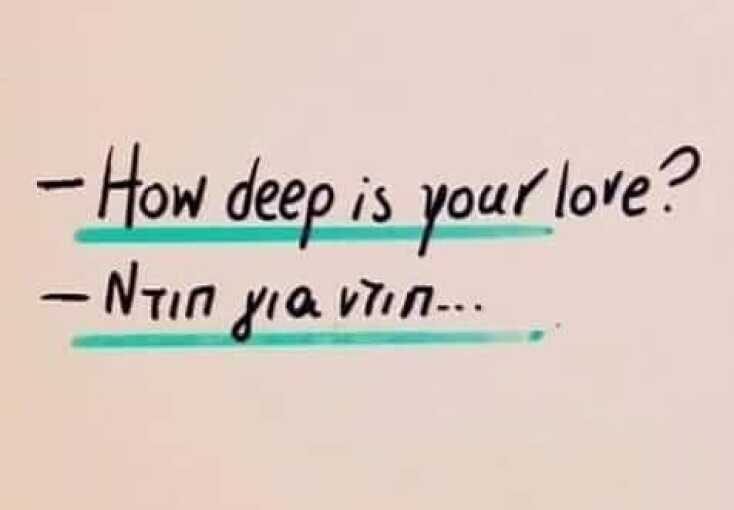 - How deep is your love?
- Ντιπ για ντιπ...